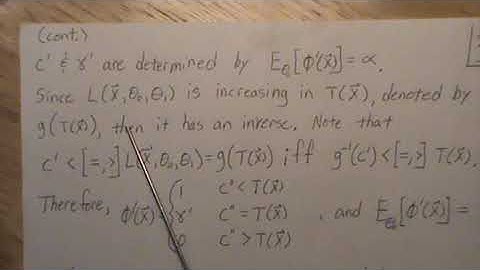 (cont.)
c' & γ' are determined by E_θ₀[ϕ'(x⃗)] = α.
Since L(x⃗,θ₀,θ₁) is increasing in T(x⃗), denoted by
g(T(x⃗)), then it has an inverse. Note that
c' < [=,>] L(x⃗,θ₀,θ₁) = g(T(x⃗)) iff g⁻¹(c') < [=,>] T(x⃗).
Therefore, ϕ'(x⃗) = { 1 c'' < T(x⃗)
γ' c'' = T(x⃗) , and E_θ₀[ϕ'(x⃗)] =
0 c'' > T(x⃗)